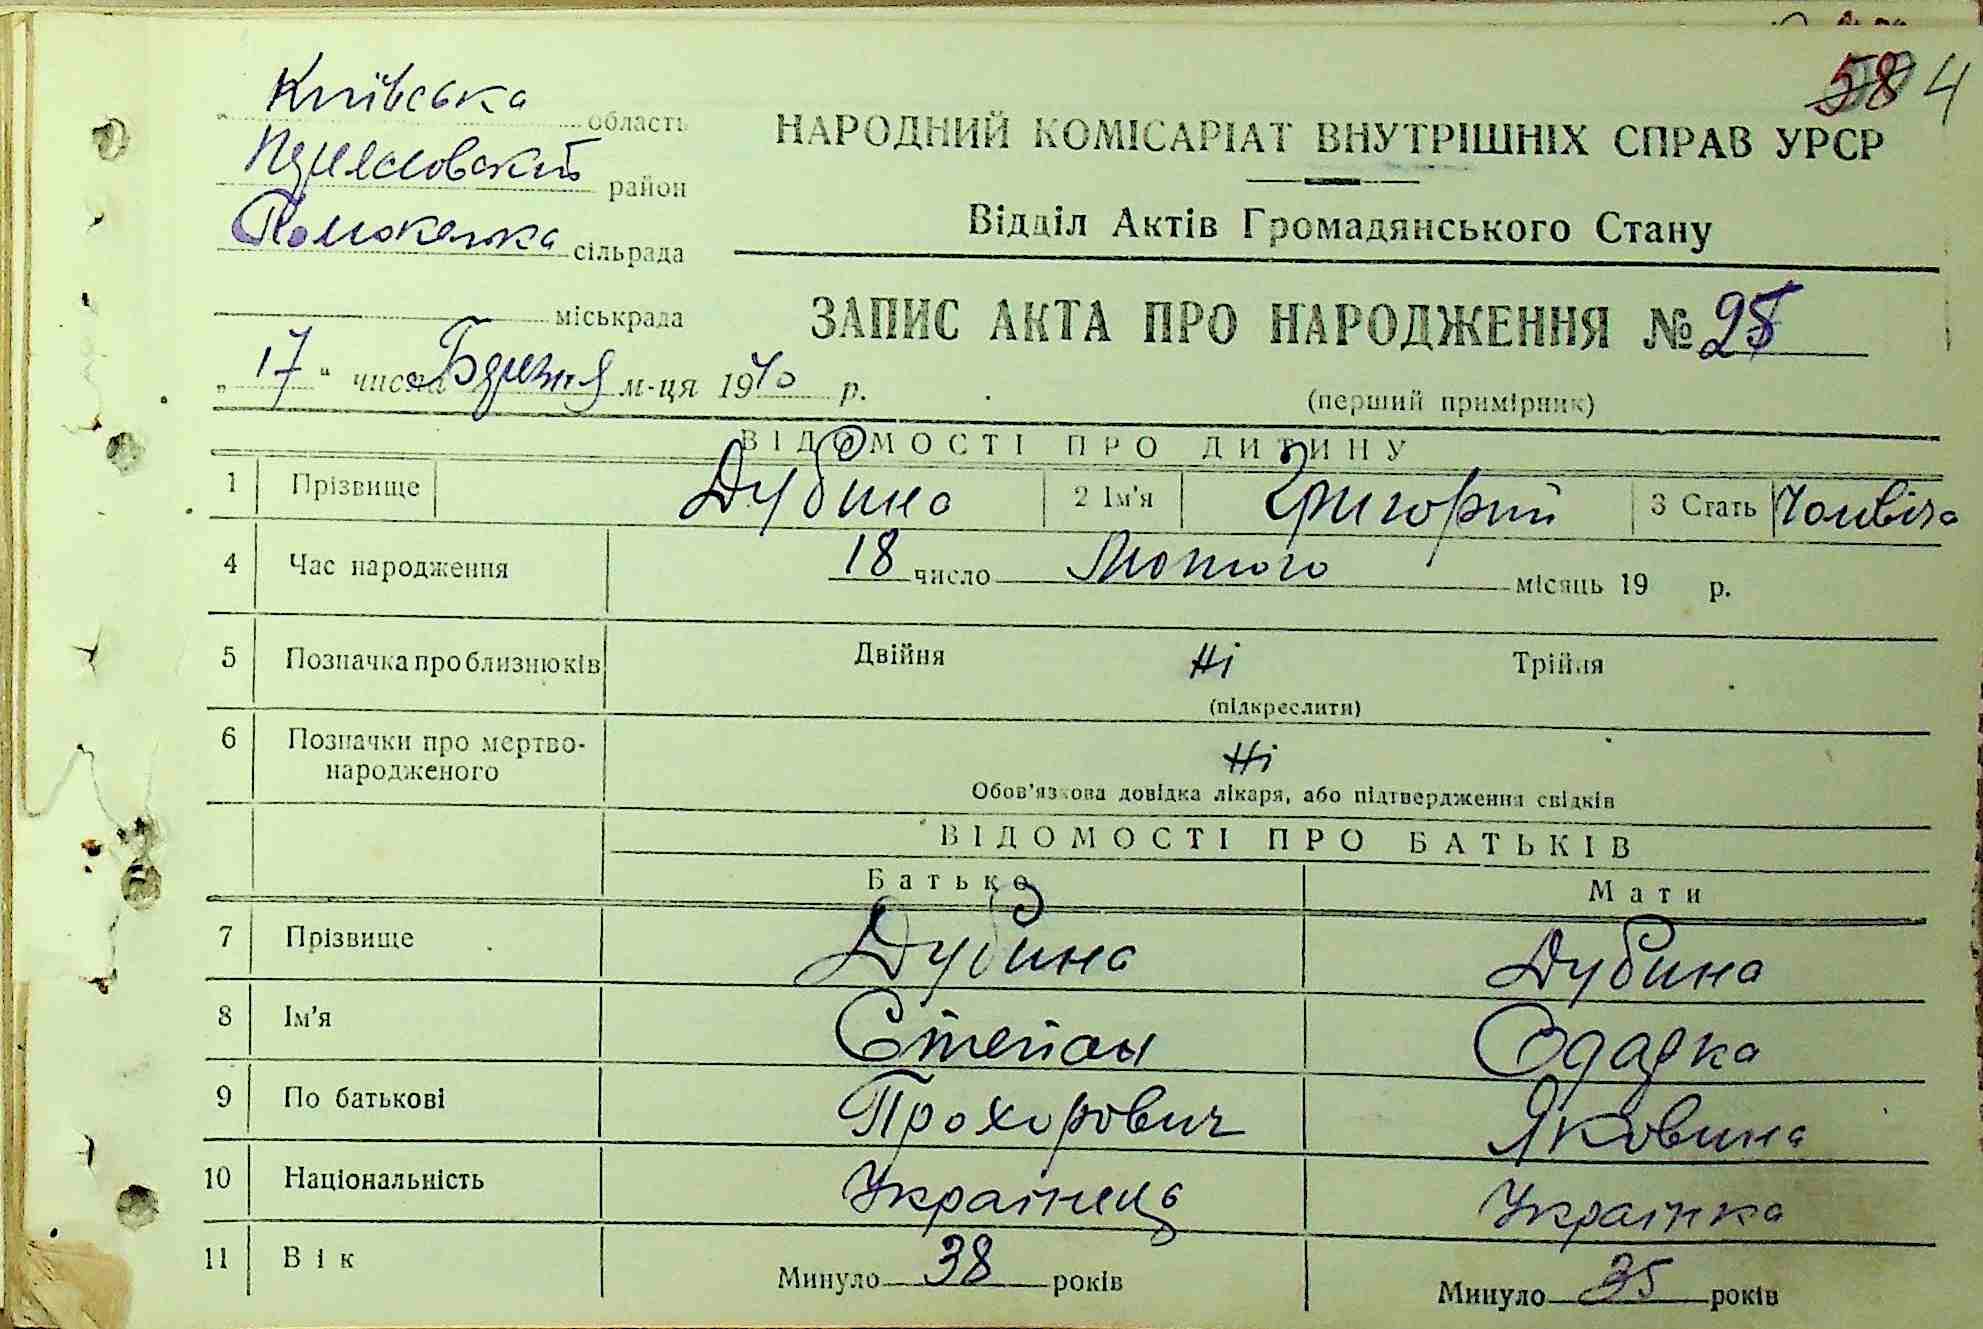 58 4
Київська область
район
сільрада
міськрада
НАРОДНИЙ КОМІСАРІАТ ВНУТРІШНІХ СПРАВ УРСР
Відділ Актів Громадянського Стану
ЗАПИС АКТА ПРО НАРОДЖЕННЯ №
(перший примірник)
„ 17 “ числа Березня м-ця 1940 р.
ВІДОМОСТІ ПРО ДИТИНУ
1 Прізвище Дубина 2 Ім'я Григорий 3 Стать
4 Час народження 18 число Лютого місяць 19 р.
5 Позначка про близнюків Двійня Ні Трійня
(підкреслити)
6 Позначки про мертво-
народженого Ні
Обов'язкова довідка лікаря, або підтвердження свідків
ВІДОМОСТІ ПРО БАТЬКІВ
Батько Мати
7 Прізвище Дубина Дубина
8 Ім'я Степан Одарка
9 По батькові Прохорович Яковина
10 Національність Українець Українка
11 Вік Минуло 38 років Минуло 35 років